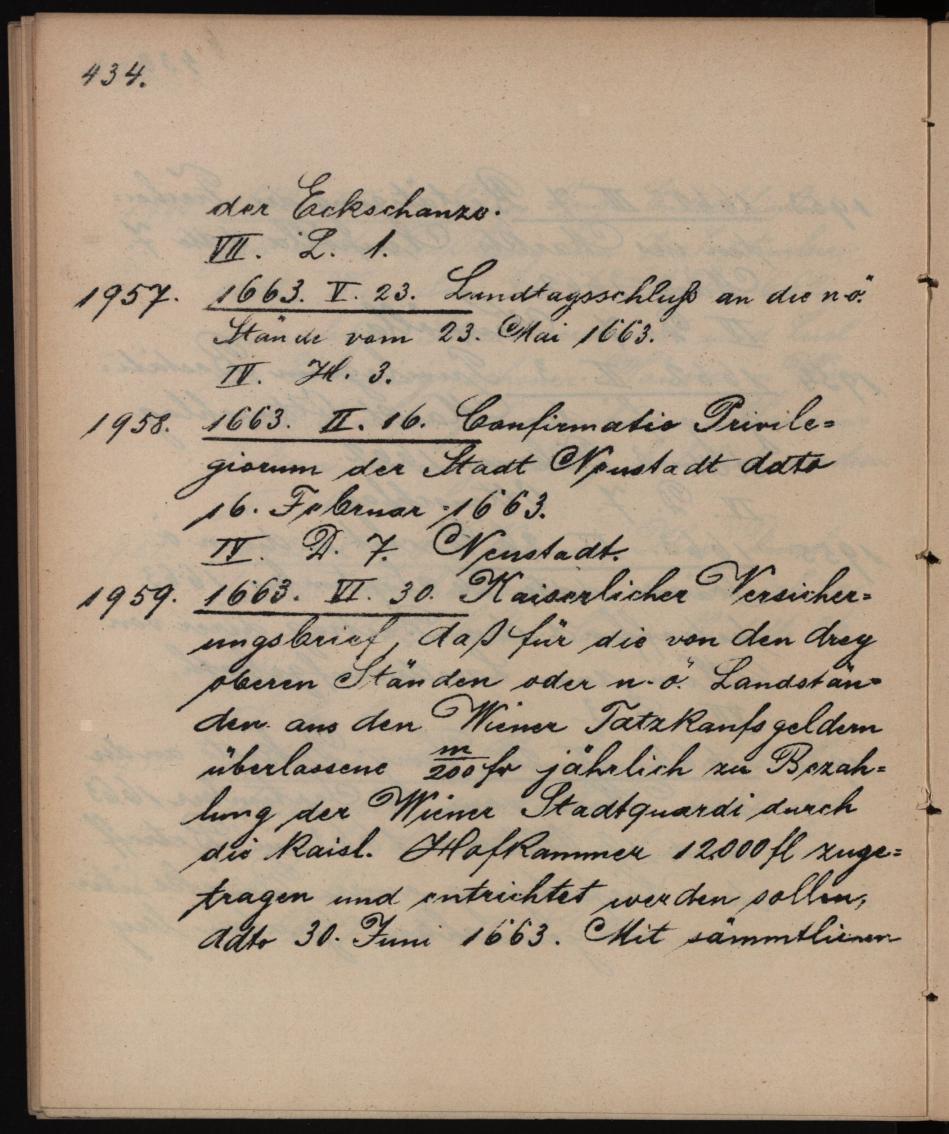 434.
der Eckschanze.
VII. L. 1.
1957. 1663. V. 23. Landtagsschluß an die n.ö.
Stände vom 23. Mai 1663.
IV. H. 3.
1958. 1663. II. 16. Confirmatio Privile=
giorum der Stadt Neustadt ddto
16. Februar 1663.
IV. D. 7. Neustadt.
1959. 1663. VI. 30. Kaiserlicher Versicher=
ungsbrief, daß für die von den drey
oberen Ständen oder n.ö. Landstän=
den aus den Wiener Tatzkaufsgeldern
überlassene m/200 fr jährlich zu Bezah=
lung der Wiener Stadtquardi durch
die kaisl. Hofkammer 12000 fl zuge=
tragen und entrichtet werden sollen,
ddto 30. Juni 1663. Mit sämmtlichen